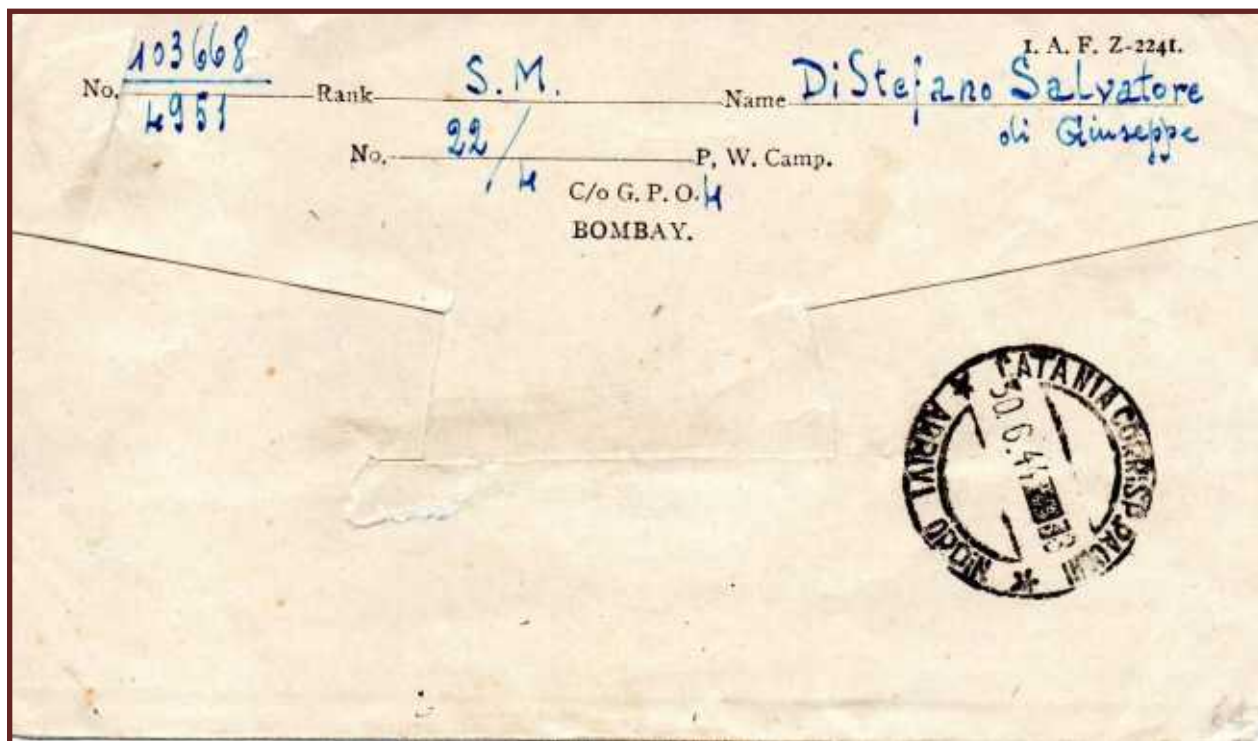 I. A. F. Z-2241.
No. 103668 Rank S. M. Name Di Stefano Salvatore
4951 di Giuseppe
No. 22/4 P. W. Camp.
C/o G. P. O. 4
BOMBAY.
CATANIA CORRISP. PACCHI
ARRIVI ORDIN
30.6.44